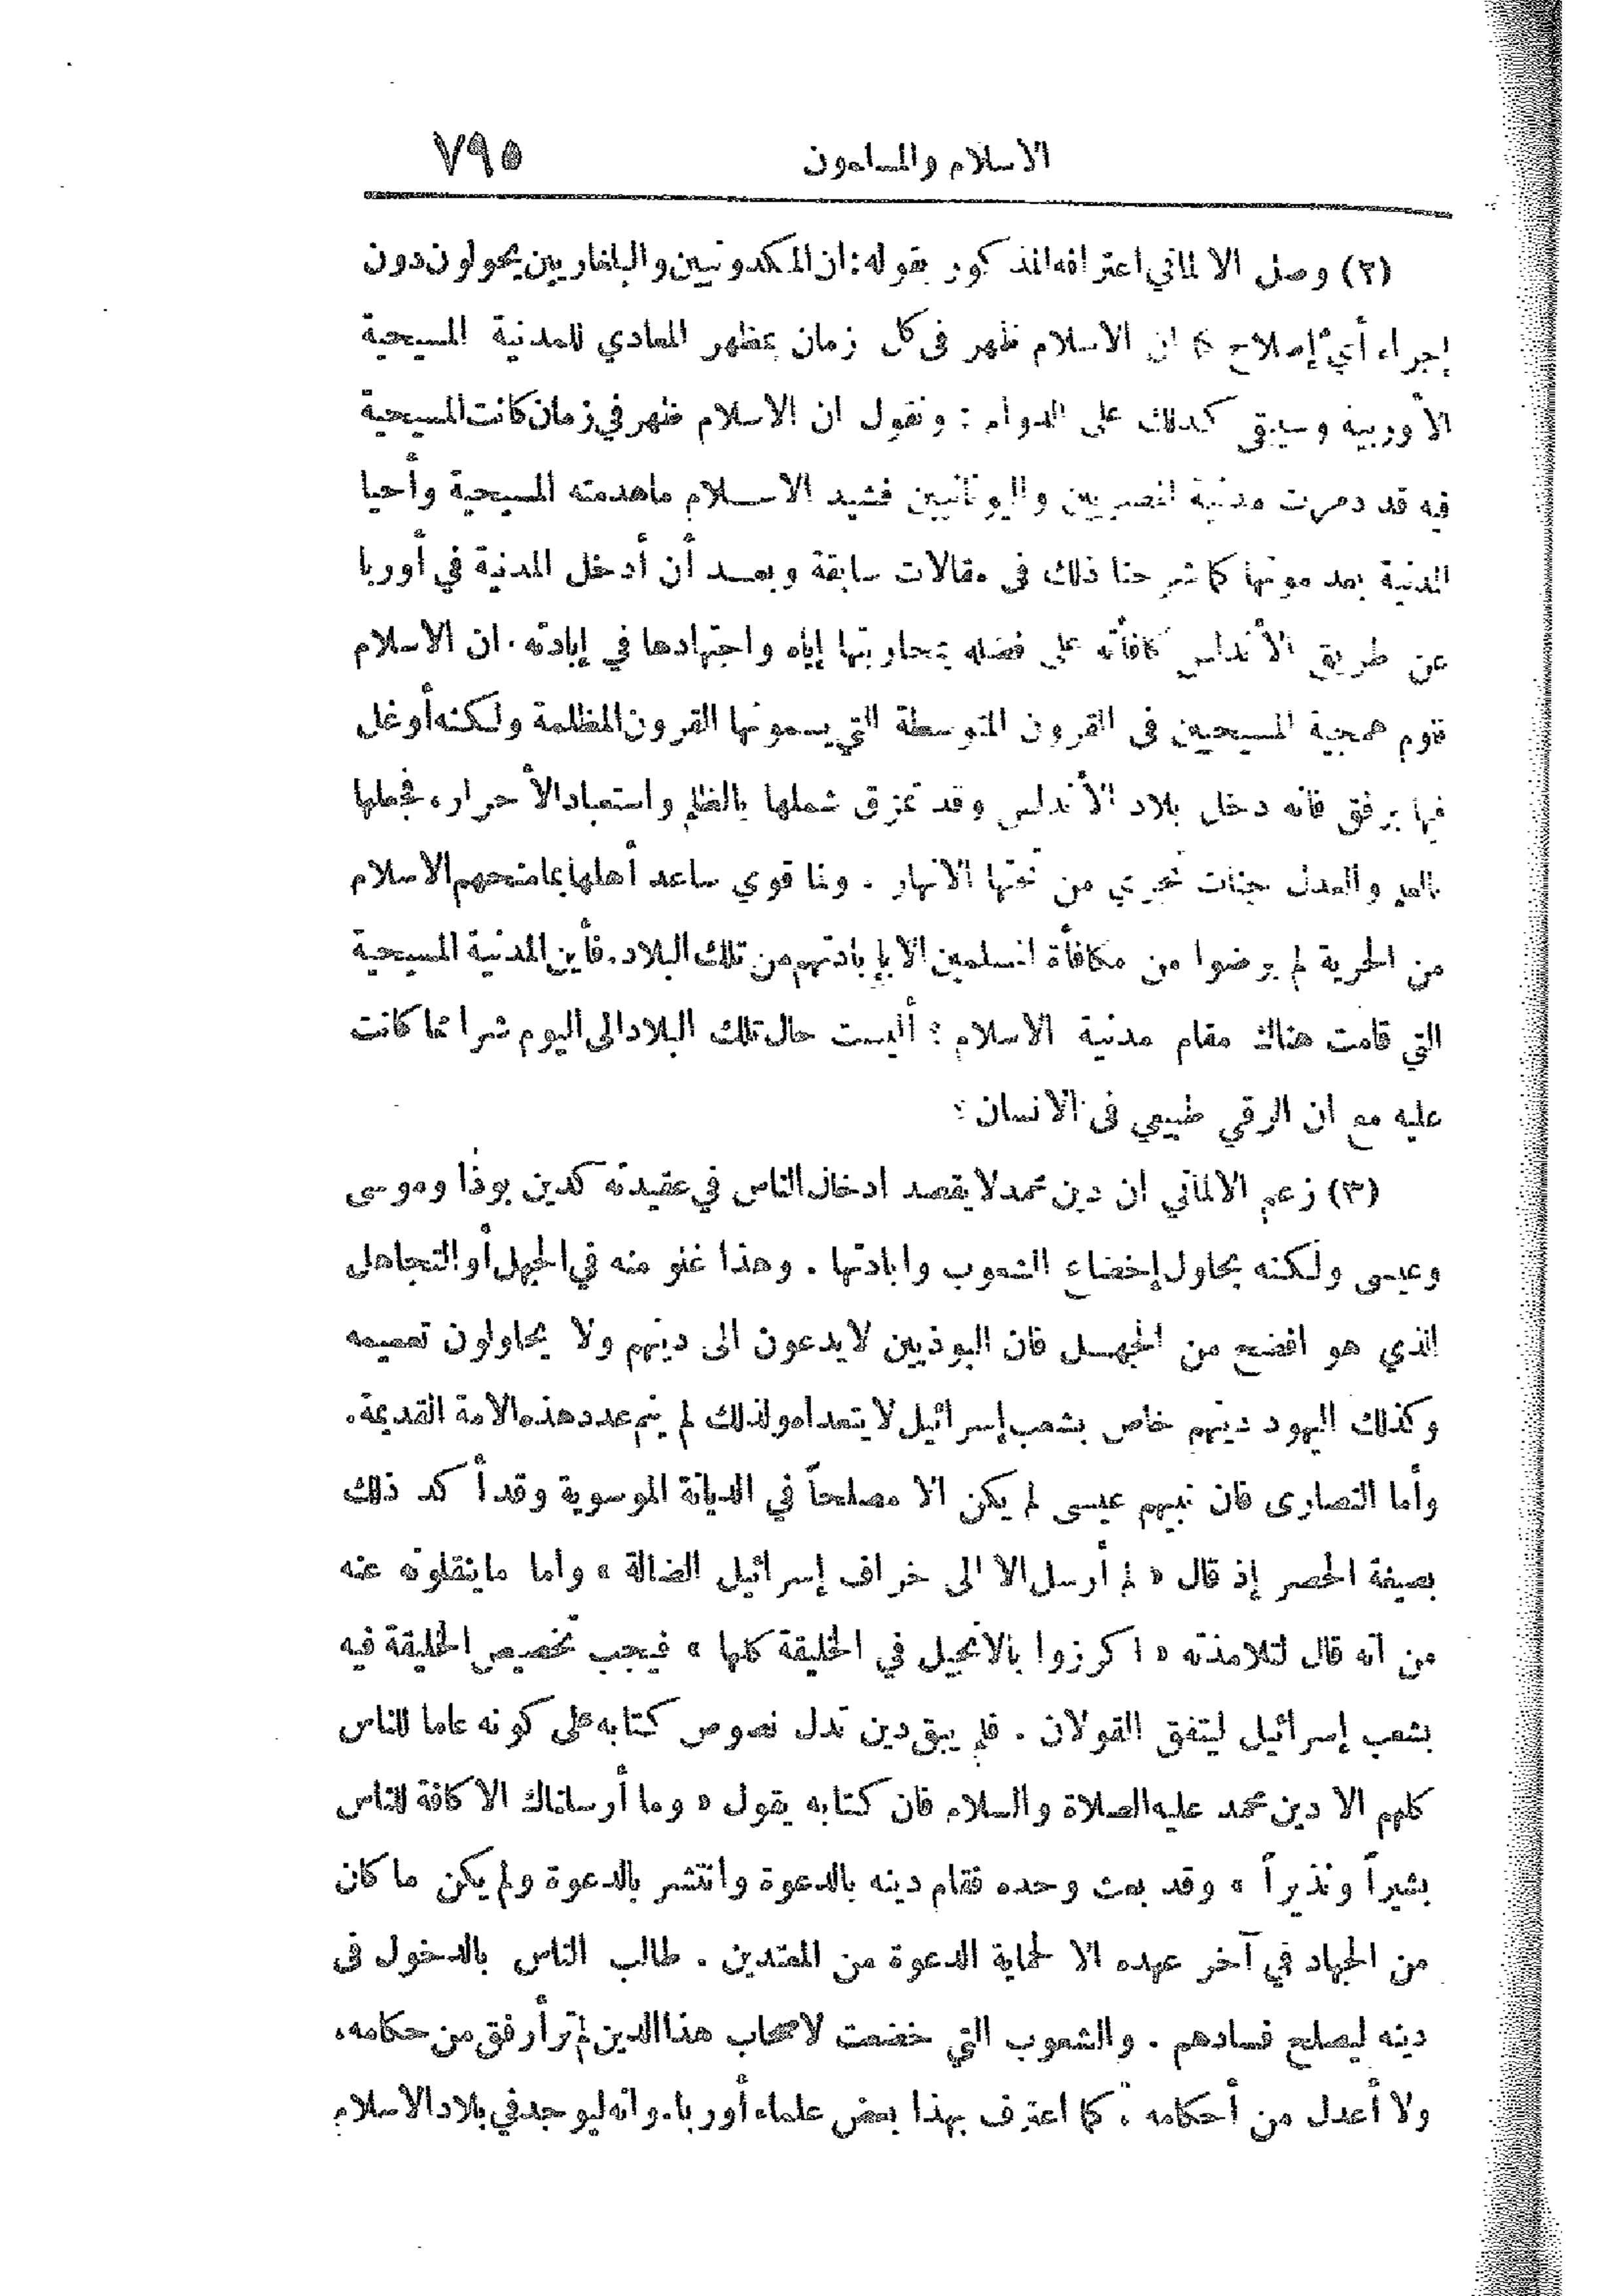 الاسلام والمسلمون ٧٩٥
(٢) وصل الالماني اعترافه المذكور بقوله: ان المكدونيين والبلغاريين يحولون دون
إجراء أيّ إصلاح كما ان الاسلام ظهر في كل زمان بمظهر المعادي للمدنية المسيحية
الأوربية وسيبقى كذلك على الدوام : ونقول ان الاسلام ظهر في زمان كانت المسيحية
فيه قد دمرت مدنية المصريين واليونانيين فشيد الاسلام ماهدمته المسيحية وأحيا
المدنية بعد موتها كما شرحنا ذلك في مقالات سابقة وبعد أن أدخل المدنية في أوربا
عن طريق الأندلس كافأته على فضله بمحاربتها إياه واجتهادها في إبادته . ان الاسلام
قاوم همجية المسيحيين في القرون المتوسطة التي يسمونها القرون المظلمة ولكنه أوغل
فيها برفق فانه دخل بلاد الأندلس وقد تمزق شملها بالظلم واستعباد الأحرار، فجعلها
بالعلم والعدل جنات تجري من تحتها الانهار . ولما قوي ساعد أهلها بما منحهم الاسلام
من الحرية لم يرضوا من مكافأة المسلمين الا بإبادتهم من تلك البلاد. فأين المدنية المسيحية
التي قامت هناك مقام مدنية الاسلام ؟ أليست حال تلك البلاد الى اليوم شرا مما كانت
عليه مع ان الرقي طبيعي في الانسان ؟
(٣) زعم الالماني ان دين محمد لا يقصد ادخال الناس في عقيدته كدين بوذا وموسى
وعيسى ولكنه يحاول إخضاع الشعوب وابادتها . وهذا غلو منه في الجهل أو التجاهل
الذي هو افضح من الجهل فان البوذيين لا يدعون الى دينهم ولا يحاولون تعميمه
وكذلك اليهود دينهم خاص بشعب إسرائيل لا يتعداه ولذلك لم ينم عدد هذه الامة القديمة.
وأما النصارى فان نبيهم عيسى لم يكن الا مصلحاً في الديانة الموسوية وقد أكد ذلك
بصيغة الحصر إذ قال « لم أرسل الا الى خراف إسرائيل الضالة » وأما ما ينقلونه عنه
من انه قال لتلامذته « اكرزوا بالانجيل في الخليقة كلها » فيجب تخصيص الخليقة فيه
بشعب إسرائيل ليتفق القولان . فلم يبق دين تدل نصوص كتابه على كونه عاما للناس
كلهم الا دين محمد عليه الصلاة والسلام فان كتابه يقول « وما أرسلناك الا كافة للناس
بشيراً ونذيراً » وقد بعث وحده فقام دينه بالدعوة وانتشر بالدعوة ولم يكن ما كان
من الجهاد في آخر عهده الا لحماية الدعوة من المعتدين . طالب الناس بالدخول في
دينه ليصلح فسادهم . والشعوب التي خضعت لاصحاب هذا الدين لم تر أرفق من حكامه،
ولا أعدل من أحكامه ، كما اعترف بهذا بعض علماء أوربا. وانه ليوجد في بلاد الاسلام